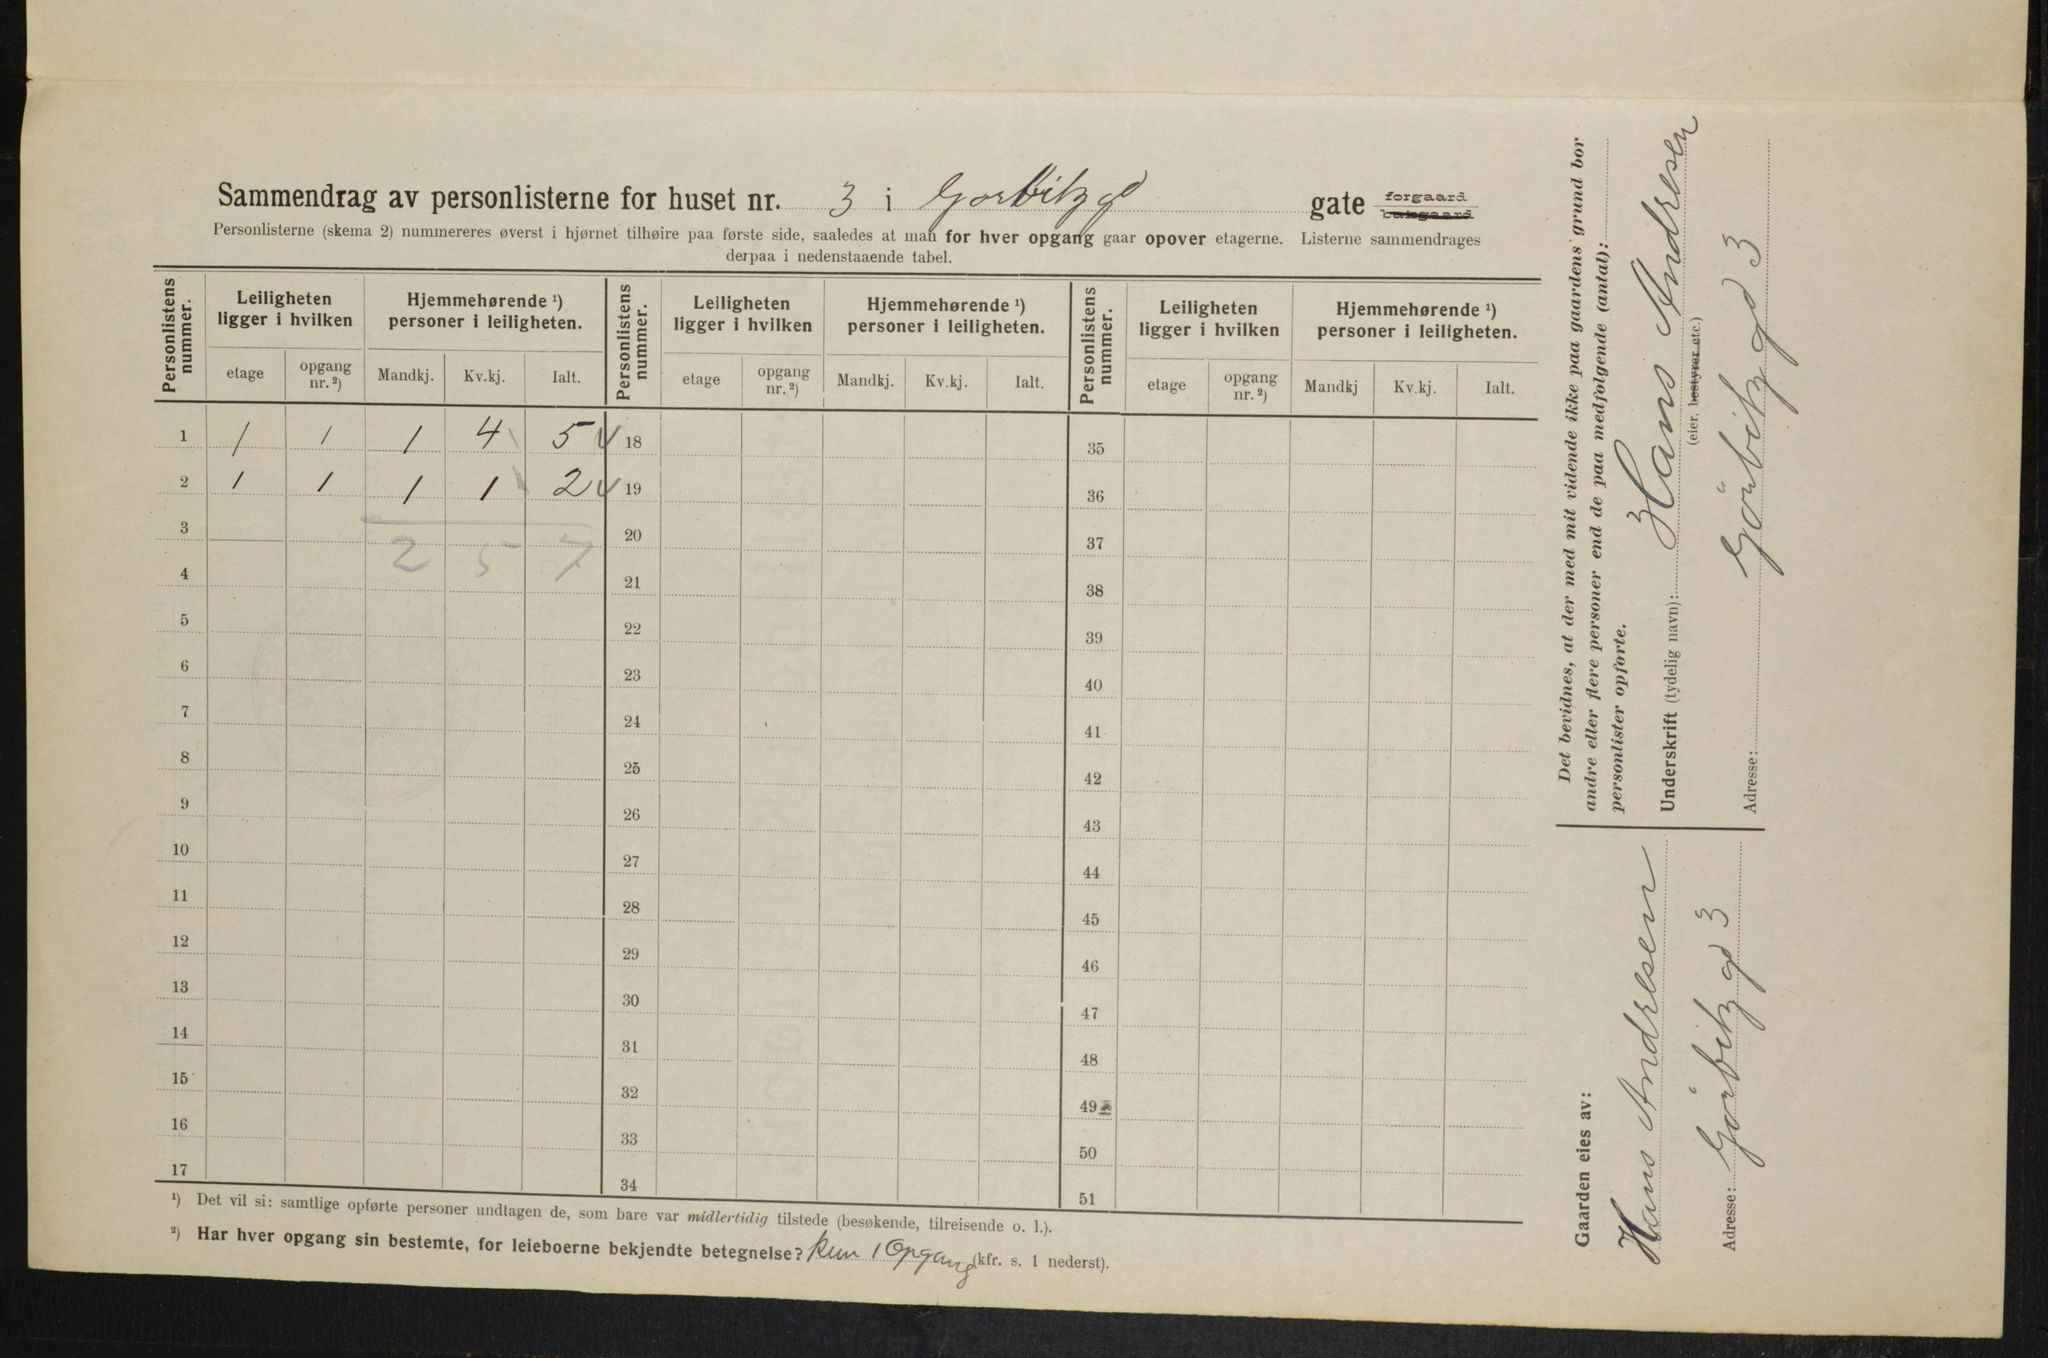 Sammendrag av personlisterne for huset nr. 3 i Gorbitz gd gate forgaard bakgaard
Personlisterne (skema 2) nummereres øverst i hjørnet tilhøire paa første side, saaledes at man for hver opgang gaar opover etagerne. Listerne sammendrages
derpaa i nedenstaaende tabel.
Personlistens nummer. Leiligheten ligger i hvilken Hjemmehørende ¹) personer i leiligheten. Personlistens nummer. Leiligheten ligger i hvilken Hjemmehørende ¹) personer i leiligheten. Personlistens nummer. Leiligheten ligger i hvilken Hjemmehørende ¹) personer i leiligheten.
etage opgang nr. ²) Mandkj. Kv.kj. Ialt. etage opgang nr. ²) Mandkj. Kv.kj. Ialt. etage opgang nr. ²) Mandkj Kv.kj. Ialt.
1 1 1 1 4 5 18 35
2 1 1 1 1 2 19 36
3 20 37
2 5 7
4 21 38
5 22 39
6 23 40
7 24 41
8 25 42
9 26 43
10 27 44
11 28 45
12 29 46
13 30 47
14 31 48
15 32 49
16 33 50
17 34 51
¹) Det vil si: samtlige opførte personer undtagen de, som bare var midlertidig tilstede (besøkende, tilreisende o. l.).
²) Har hver opgang sin bestemte, for leieboerne bekjendte betegnelse? kun 1 Opgang (kfr. s. 1 nederst).
Det bevidnes, at der med mit vidende ikke paa gaardens grund bor
andre eller flere personer end de paa medfølgende (antal):
personlister opførte.
Underskrift (tydelig navn): Hans Andresen
(eier, bestyrer etc.)
Adresse: Görbitz gd 3
Gaarden eies av:
Hans Andresen
Adresse: Görbitz gd 3